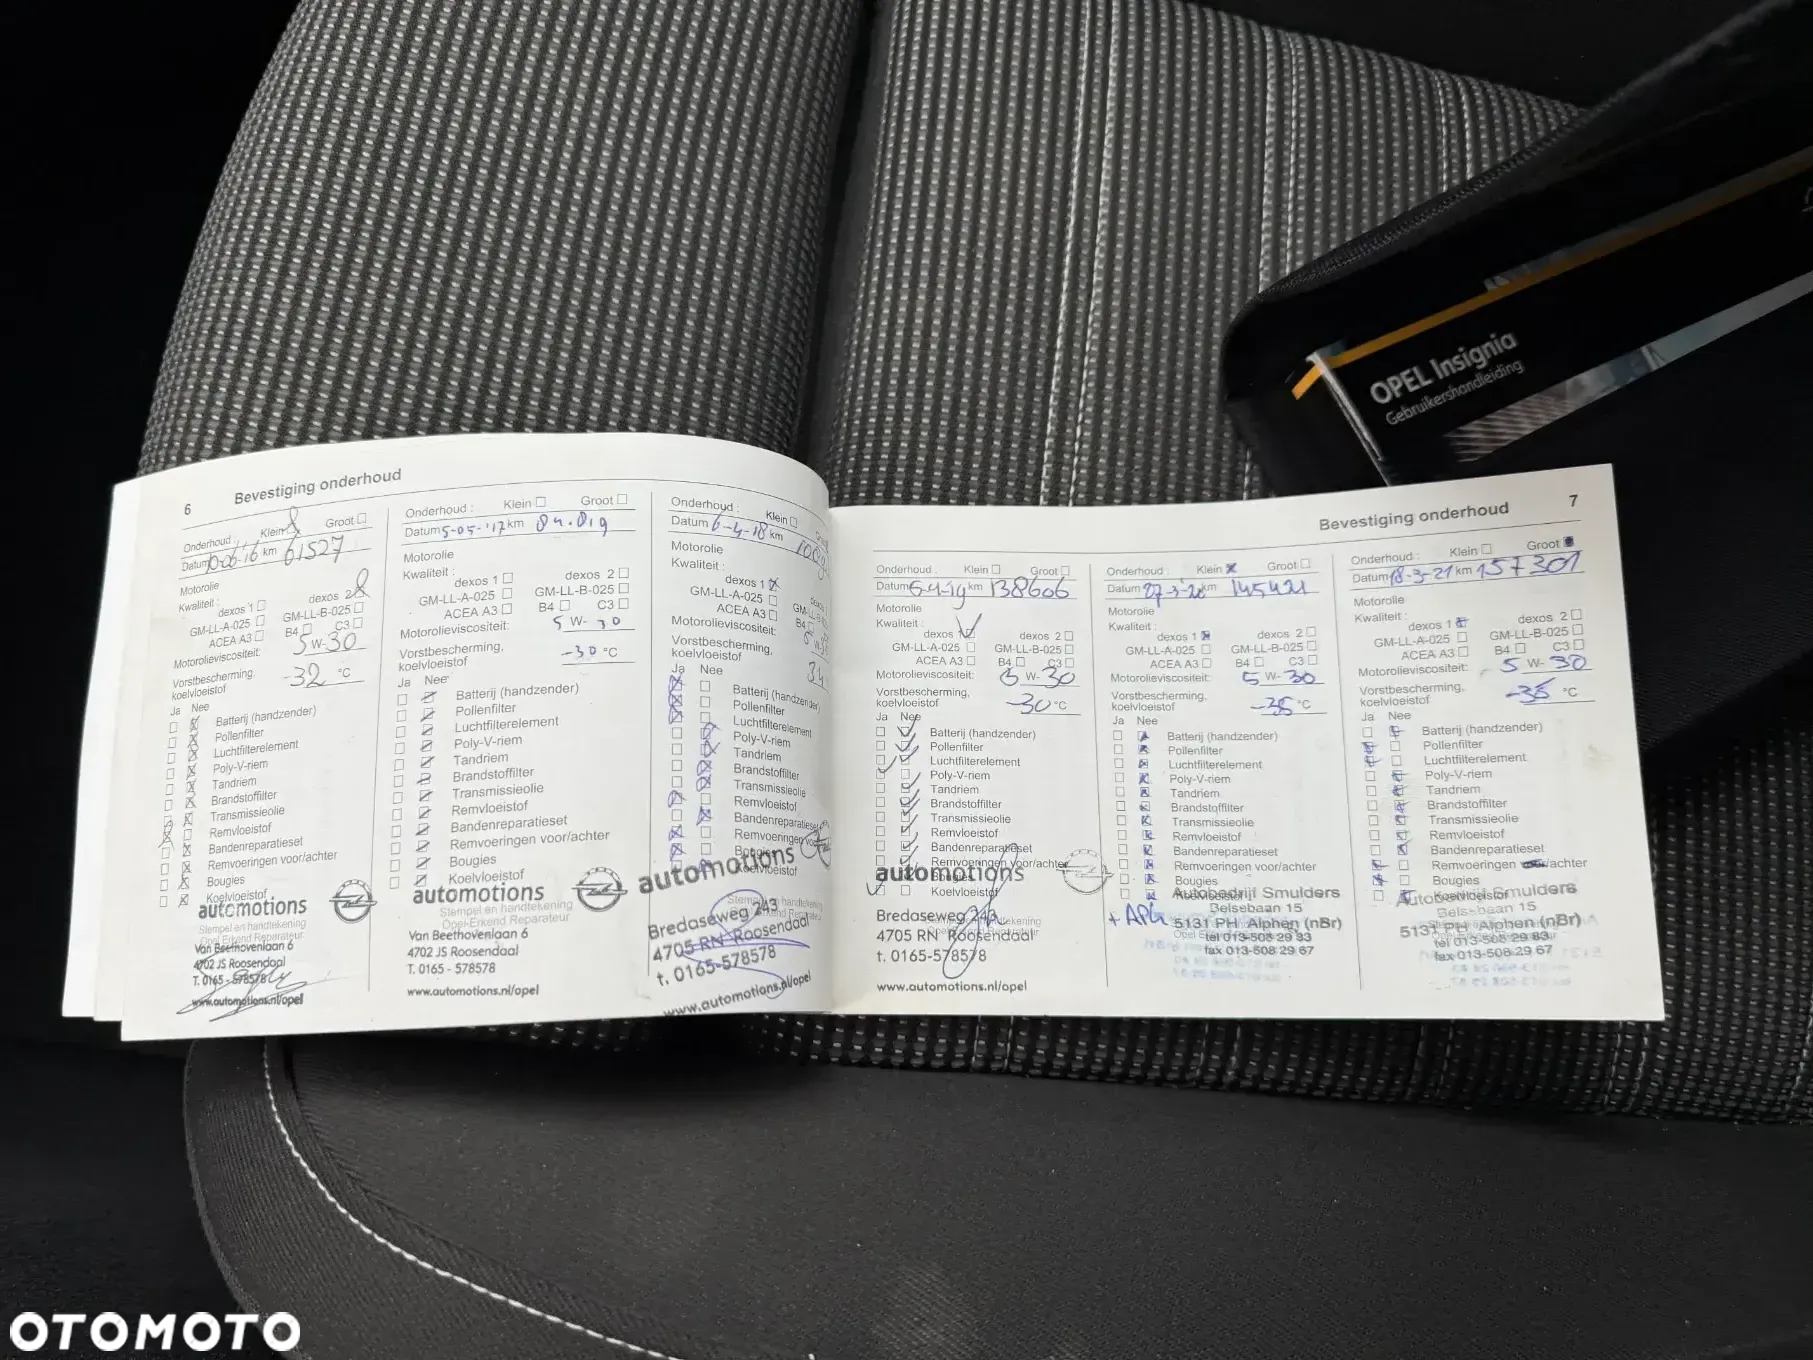 OPEL Insignia
Gebruikershandleiding
6
Bevestiging onderhoud
Onderhoud : Klein Groot
Datum 10-06-'16 km 61527
Motorolie
Kwaliteit :
dexos 1 dexos 2
GM-LL-A-025 GM-LL-B-025
ACEA A3 B4 C3
Motorolieviscositeit: 5 W- 30
Vorstbescherming,
koelvloeistof -32 °C
Ja Nee
Batterij (handzender)
Pollenfilter
Luchtfilterelement
Poly-V-riem
Tandriem
Brandstoffilter
Transmissieolie
Remvloeistof
Bandenreparatieset
Remvoeringen voor/achter
Bougies
Koelvloeistof
automotions
Stempel en handtekening
Opel Erkend Reparateur
Van Beethovenlaan 6
4702 JS Roosendaal
T. 0165 - 578578
www.automotions.nl/opel
Onderhoud : Klein Groot
Datum 5-05-'17 km 84.819
Motorolie
Kwaliteit :
dexos 1 dexos 2
GM-LL-A-025 GM-LL-B-025
ACEA A3 B4 C3
Motorolieviscositeit: 5 W- 30
Vorstbescherming,
koelvloeistof -30 °C
Ja Nee
Batterij (handzender)
Pollenfilter
Luchtfilterelement
Poly-V-riem
Tandriem
Brandstoffilter
Transmissieolie
Remvloeistof
Bandenreparatieset
Remvoeringen voor/achter
Bougies
Koelvloeistof
automotions
Stempel en handtekening
Opel-Erkend Reparateur
Van Beethovenlaan 6
4702 JS Roosendaal
T. 0165 - 578578
www.automotions.nl/opel
Onderhoud : Klein
Datum 6-4-18 km
Motorolie
Kwaliteit :
dexos 1
GM-LL-A-025
ACEA A3 B4
Motorolieviscositeit:
Vorstbescherming,
koelvloeistof
Ja Nee
Batterij (handzender)
Pollenfilter
Luchtfilterelement
Poly-V-riem
Tandriem
Brandstoffilter
Transmissieolie
Remvloeistof
Bandenreparatieset
Remvoeringen
Bougies
Koelvloeistof
automotions
Bredaseweg 243
4705 RN Roosendaal
t. 0165-578578
www.automotions.nl/opel
Bevestiging onderhoud
7
Onderhoud : Klein Groot
Datum 6-4-19 km 138606
Motorolie
Kwaliteit :
dexos 1 dexos 2
GM-LL-A-025 GM-LL-B-025
ACEA A3 B4 C3
Motorolieviscositeit: 5 W- 30
Vorstbescherming,
koelvloeistof -30 °C
Ja Nee
Batterij (handzender)
Pollenfilter
Luchtfilterelement
Poly-V-riem
Tandriem
Brandstoffilter
Transmissieolie
Remvloeistof
Bandenreparatieset
Remvoeringen voor/achter
Bougies
Koelvloeistof
automotions
Bredaseweg 243
4705 RN Roosendaal
t. 0165-578578
www.automotions.nl/opel
Onderhoud : Klein Groot
Datum 27-3-'20 km 145421
Motorolie
Kwaliteit :
dexos 1 dexos 2
GM-LL-A-025 GM-LL-B-025
ACEA A3 B4 C3
Motorolieviscositeit: 5 W- 30
Vorstbescherming,
koelvloeistof -35 °C
Ja Nee
Batterij (handzender)
Pollenfilter
Luchtfilterelement
Poly-V-riem
Tandriem
Brandstoffilter
Transmissieolie
Remvloeistof
Bandenreparatieset
Remvoeringen voor/achter
Bougies
Koelvloeistof
+ APK
Autobedrijf Smulders
Belsebaan 15
5131 PH Alphen (nBr)
tel 013-508 29 83
fax 013-508 29 67
Onderhoud : Klein Groot
Datum 18-3-21 km 157301
Motorolie
Kwaliteit :
dexos 1 dexos 2
GM-LL-A-025 GM-LL-B-025
ACEA A3 B4 C3
Motorolieviscositeit: 5 W- 30
Vorstbescherming,
koelvloeistof -35 °C
Ja Nee
Batterij (handzender)
Pollenfilter
Luchtfilterelement
Poly-V-riem
Tandriem
Brandstoffilter
Transmissieolie
Remvloeistof
Bandenreparatieset
Remvoeringen /achter
Bougies
Koelvloeistof
Autobedrijf Smulders
Belsebaan 15
5131 PH Alphen (nBr)
tel 013-508 29 83
fax 013-508 29 67
OTOMOTO